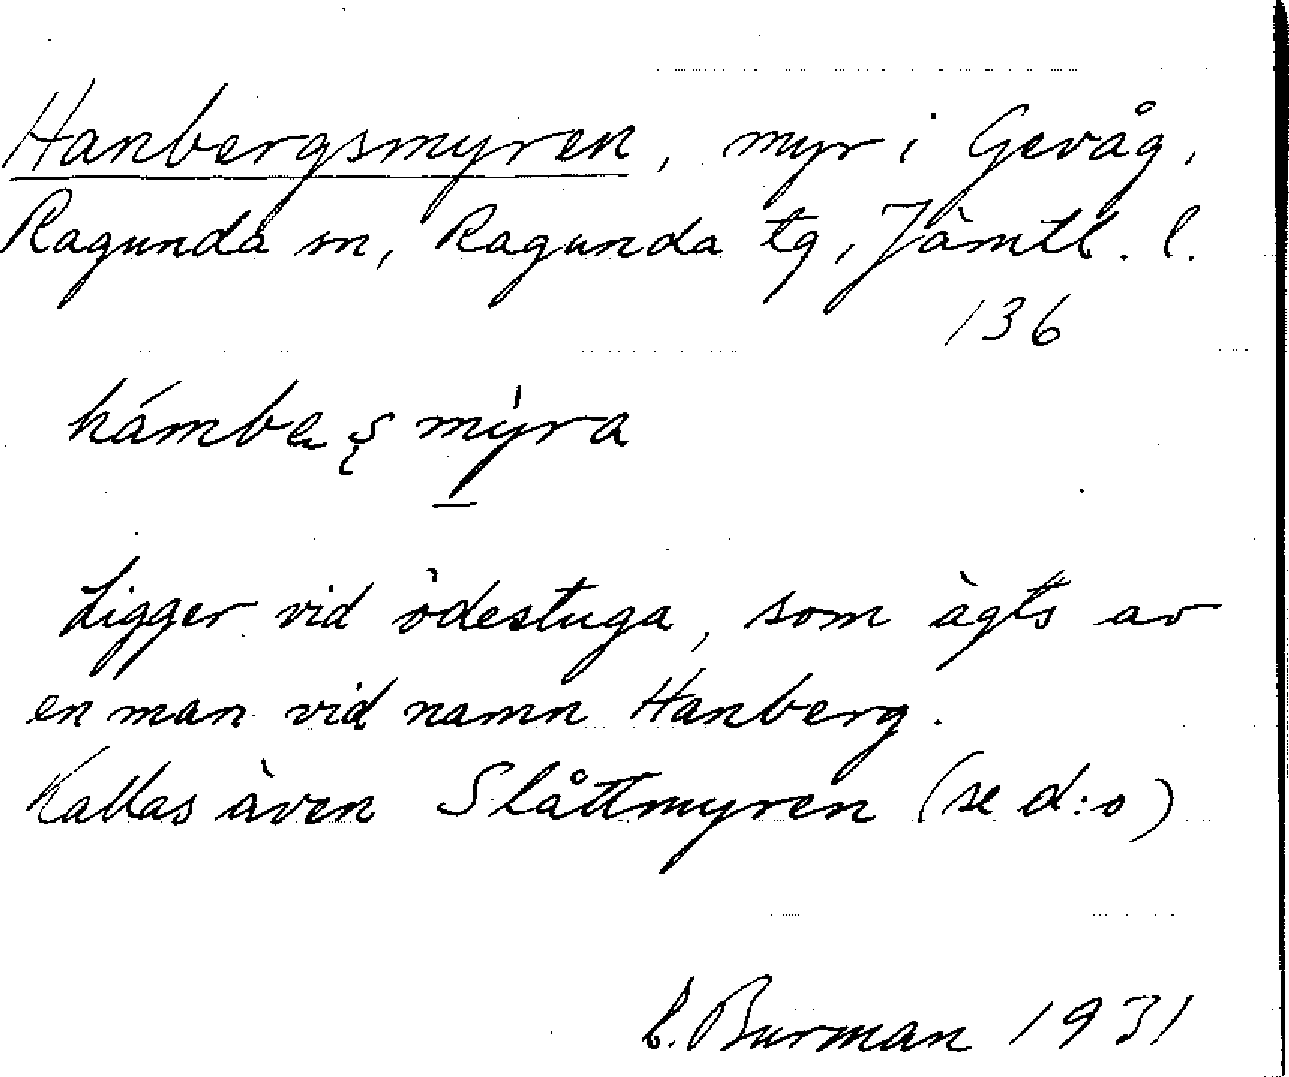 Hanbergsmyren, myr i Gevåg,
Ragunda sn, Ragunda tg, Jämtl. l.
136
Ligger vid ödestuga, som ägts av
en man vid namn Hanberg.
Kallas även Slåttmyren (se d:o)
Burman 1931